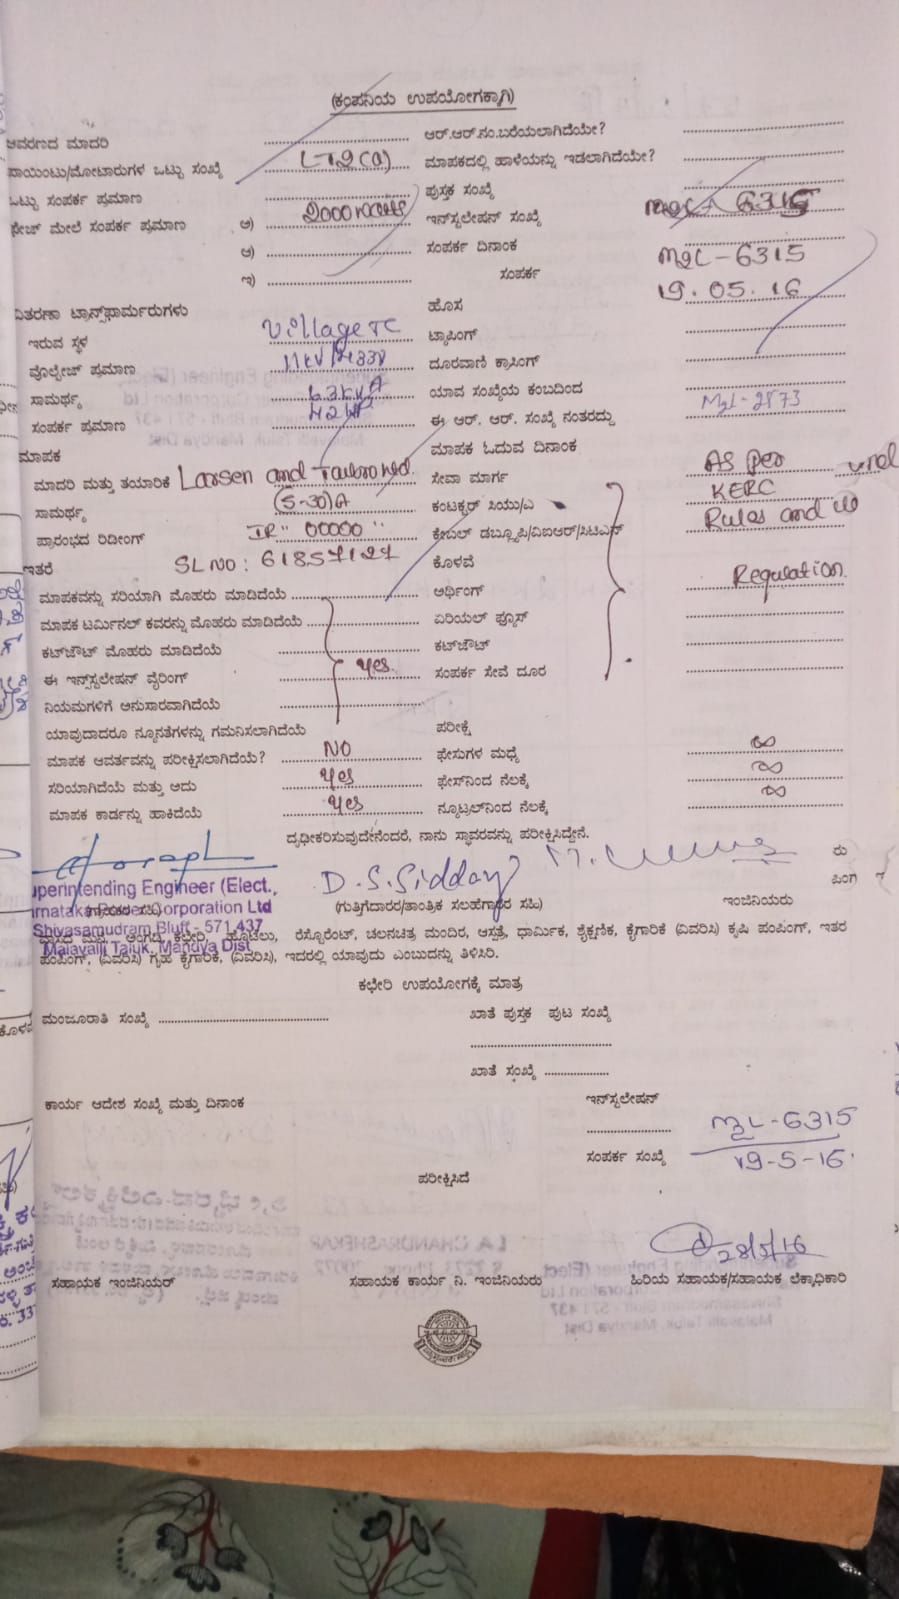 (ಕಂಪನಿಯ ಉಪಯೋಗಕ್ಕಾಗಿ)
ಆವರಣದ ಮಾದರಿ ಆರ್.ಆರ್.ನಂ.ಬರೆಯಲಾಗಿದೆಯೇ?
ಪಾಯಿಂಟು/ಮೋಟಾರುಗಳ ಒಟ್ಟು ಸಂಖ್ಯೆ LT2(a) ಮಾಪಕದಲ್ಲಿ ಹಾಳೆಯನ್ನು ಇಡಲಾಗಿದೆಯೇ?
ಒಟ್ಟು ಸಂಪರ್ಕ ಪ್ರಮಾಣ ಪುಸ್ತಕ ಸಂಖ್ಯೆ
ಮೇಲೆ ಸಂಪರ್ಕ ಪ್ರಮಾಣ ಅ) 2000 watts ಇನ್‌ಸ್ಟಲೇಷನ್ ಸಂಖ್ಯೆ 6315
ಆ) ಸಂಪರ್ಕ ದಿನಾಂಕ MGL-6315
ಇ) ಸಂಪರ್ಕ 19.05.16
ವಿತರಣಾ ಟ್ರಾನ್ಸ್‌ಫಾರ್ಮರುಗಳು ಹೊಸ
ಇರುವ ಸ್ಥಳ Village TC ಟ್ಯಾಪಿಂಗ್
ವೊಲ್ಟೇಜ್ ಪ್ರಮಾಣ 11KV/433V ದೂರವಾಣಿ ಕ್ರಾಸಿಂಗ್
ಸಾಮರ್ಥ್ಯ 63KVA ಯಾವ ಸಂಖ್ಯೆಯ ಕಂಬದಿಂದ
ಸಂಪರ್ಕ ಪ್ರಮಾಣ ಈ ಆರ್. ಆರ್. ಸಂಖ್ಯೆ ನಂತರದ್ದು MGL-2873
ಮಾಪಕ ಮಾಪಕ ಓದುವ ದಿನಾಂಕ
ಮಾದರಿ ಮತ್ತು ತಯಾರಿಕೆ Larsen and ಸೇವಾ ಮಾರ್ಗ AS per
ಸಾಮರ್ಥ್ಯ (5-30)A ಕಂಟಕ್ಟರ್ ಸಿಯು/ಎ KERC
ಪ್ರಾರಂಭದ ರಿಡೀಂಗ್ IR" 00000 " ಕೇಬಲ್ ಡಬ್ಲ್ಯೂಪಿ/ವಿಐಆರ್/ಸಿಟಿಎಸ್ Rules and
ಇತರೆ SL NO: 61857127 ಕೊಳವೆ
ಮಾಪಕವನ್ನು ಸರಿಯಾಗಿ ಮೊಹರು ಮಾಡಿದೆಯೆ ಅರ್ಥಿಂಗ್ Regulation.
ಮಾಪಕ ಟರ್ಮಿನಲ್ ಕವರನ್ನು ಮೊಹರು ಮಾಡಿದೆಯೆ ಏರಿಯಲ್ ಫ್ಯೂಸ್
ಕಟ್‌ಔಟ್ ಮೊಹರು ಮಾಡಿದೆಯೆ ಕಟ್‌ಔಟ್
ಈ ಇನ್ಸ್‌ಸ್ಟಲೇಷನ್ ವೈರಿಂಗ್ yes. ಸಂಪರ್ಕ ಸೇವೆ ದೂರ
ನಿಯಮಗಳಿಗೆ ಅನುಸಾರವಾಗಿದೆಯೆ
ಯಾವುದಾದರೂ ನ್ಯೂನತೆಗಳನ್ನು ಗಮನಿಸಲಾಗಿದೆಯೆ ಪರೀಕ್ಷೆ
ಮಾಪಕ ಆವರ್ತವನ್ನು ಪರೀಕ್ಷಿಸಲಾಗಿದೆಯೆ? NO ಫೇಸುಗಳ ಮಧ್ಯೆ ∞
ಸರಿಯಾಗಿದೆಯೆ ಮತ್ತು ಅದು yes ಫೇಸ್‌ನಿಂದ ನೆಲಕ್ಕೆ ∞
ಮಾಪಕ ಕಾರ್ಡನ್ನು ಹಾಕಿದೆಯೆ yes ನ್ಯೂಟ್ರಲ್‌ನಿಂದ ನೆಲಕ್ಕೆ ∞
ದೃಢೀಕರಿಸುವುದೇನೆಂದರೆ, ನಾನು ಸ್ಥಾವರವನ್ನು ಪರೀಕ್ಷಿಸಿದ್ದೇನೆ.
uperintending Engineer (Elect.,
D.S.Sidda
rnataka Power Corporation Ltd
(ಗುತ್ತಿಗೆದಾರರ/ತಾಂತ್ರಿಕ ಸಲಹೆಗಾರರ ಸಹಿ) ಇಂಜಿನಿಯರು
Shivasamudram Bluff - 571 437
Malavalli Taluk, Mandya Dist
ಹೊಟೆಲು, ರೆಸ್ಟೊರೆಂಟ್, ಚಲನಚಿತ್ರ ಮಂದಿರ, ಆಸ್ಪತ್ರೆ, ಧಾರ್ಮಿಕ, ಶೈಕ್ಷಣಿಕ, ಕೈಗಾರಿಕೆ (ವಿವರಿಸಿ) ಕೃಷಿ ಪಂಪಿಂಗ್, ಇತರ
ಪಂಪಿಂಗ್, (ವಿವರಿಸಿ) ಗೃಹ ಕೈಗಾರಿಕೆ, (ವಿವರಿಸಿ), ಇದರಲ್ಲಿ ಯಾವುದು ಎಂಬುದನ್ನು ತಿಳಿಸಿರಿ.
ಕಛೇರಿ ಉಪಯೋಗಕ್ಕೆ ಮಾತ್ರ
ಮಂಜೂರಾತಿ ಸಂಖ್ಯೆ ಖಾತೆ ಪುಸ್ತಕ ಪುಟ ಸಂಖ್ಯೆ
ಖಾತೆ ಸಂಖ್ಯೆ
ಕಾರ್ಯ ಆದೇಶ ಸಂಖ್ಯೆ ಮತ್ತು ದಿನಾಂಕ ಇನ್‌ಸ್ಟಲೇಷನ್
MGL-6315
ಸಂಪರ್ಕ ಸಂಖ್ಯೆ 19-5-16.
ಪರೀಕ್ಷಿಸಿದೆ
28/5/16
ಸಹಾಯಕ ಇಂಜಿನಿಯರ್ ಸಹಾಯಕ ಕಾರ್ಯ ನಿ. ಇಂಜಿನಿಯರು ಹಿರಿಯ ಸಹಾಯಕ/ಸಹಾಯಕ ಲೆಕ್ಕಾಧಿಕಾರಿ